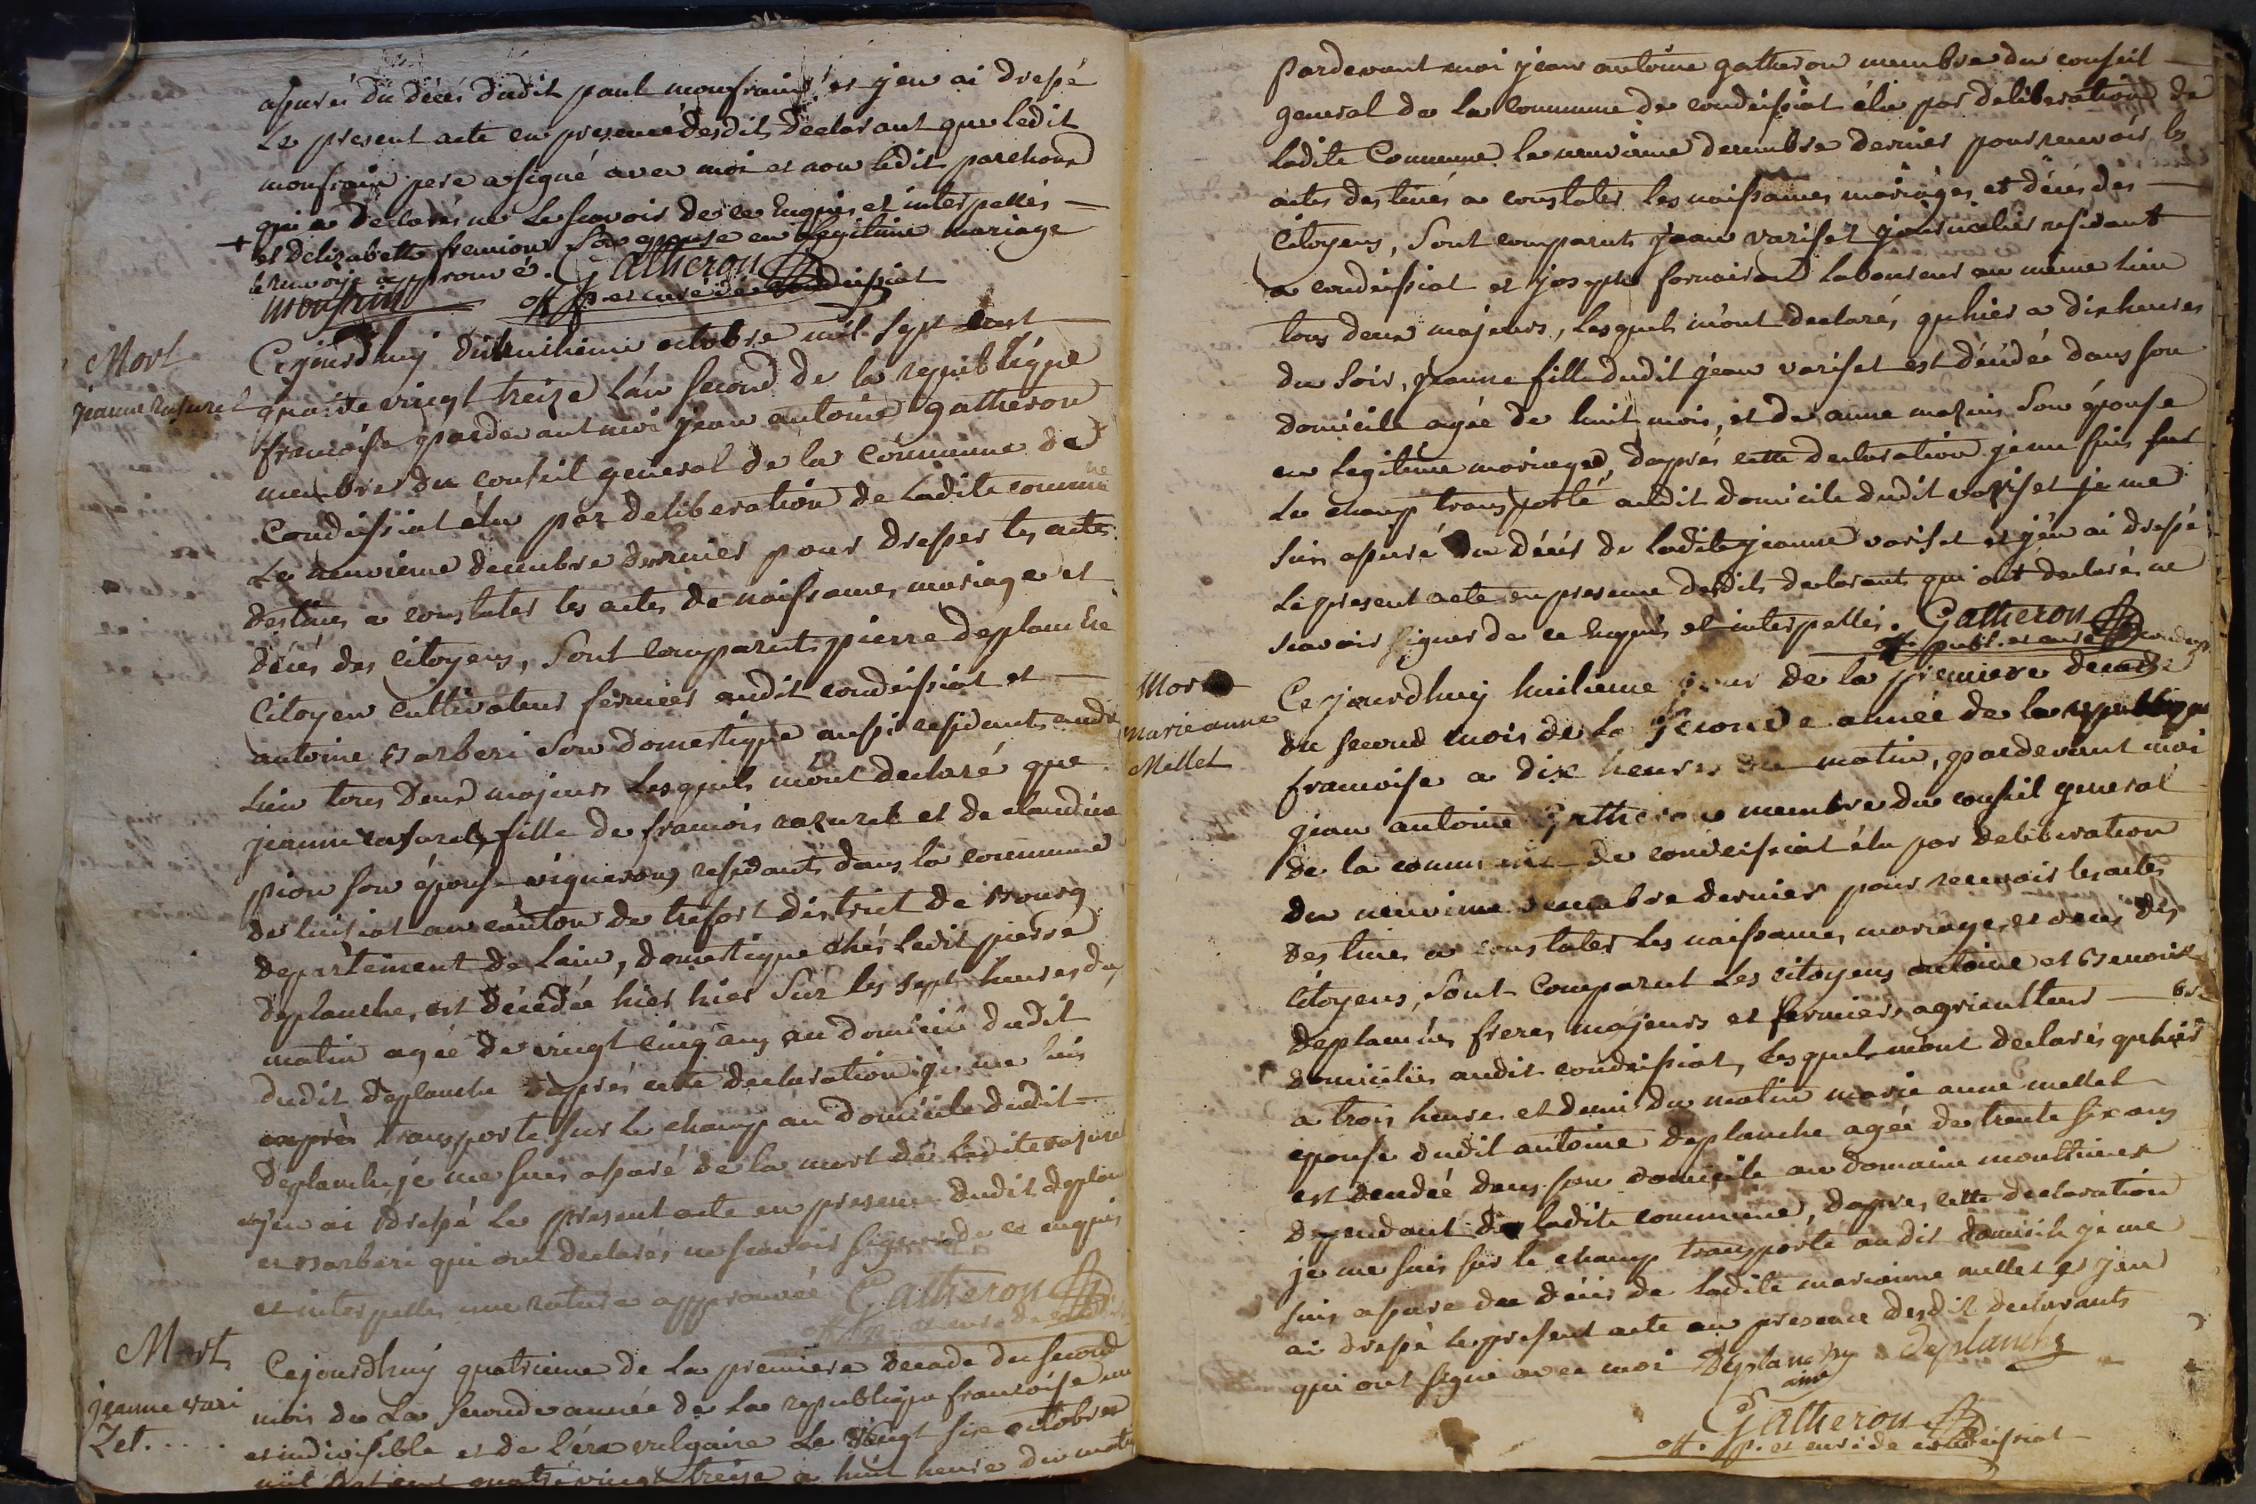 assuré du décés dudit paul monfrain et j'en ai dressé
Le present acte en presence desdits declarant que ledit
monfrain pere a signé avec moi et non ledit
qui a déclarés ne le scavoir de ce enquis et interpellés
+ et delizabette fremion son epouse en legitime mariage
le renvoie approuvé. Gatheron
monfrain off. p. et curé de condeissiat
Mort
jeanne rasurel
Cejourdhuy dixhuitieme octobre mil sept cent
quatre vingt treize l'an second de la republique
francoise pardevant moi jean antoine gatheron
membre du conseil general de la commune de
Condeissiat élu par deliberation de ladite commune
Le neuvieme decembre dernier pour dresser les actes
destinés a constater les actes de naissances mariage et
décés des citoyens, Sont comparuts pierre deplanche
Citoyen cultivateur fermier audit condeissiat et
antoine Barberi Son domestique aussi residant audit
Lieu tous deux majeurs Lesquels m'ont declaré que
jeanne rasurel, fille de francois razurel et de claudine
pion son épouse vignerons residants dans la commune
de luisiat au canton de trefort district de Bourg
departement de Lain, domestique chés Ledit pierre
deplanche, est décédée hier hier sur les sept heures du
matin agée de vingt cinq ans au domicile dudit
dudit deplanche daprés cette declaration je me suis
exprés transporté sur le champ au domicile dudit
deplanche, je me suis assuré de la mort de Ladite rasurel
et j'en ai dressé Le present acte en presence dudit deplan
et Barberi qui ont declarés ne scavoir signer de ce enquis
et interpellés une rature approuvée Gatheron
Mort
jeanne vari
Zet.....
Cejourdhuy quatrieme de la premiere decade du second
mois de La seconde année de La republique francoise une
et indivisible et de l'ére vulgaire Le vingt six octobre
mil sept cent quatre vingt treize a huit heure du matin
Pardevant moi jean antoine gatheron membre du conseil
general de La commune de condeissiat élu par deliberation de
Ladite Commune Le neuvieme decembre dernier pour recevoir les
actes destinés a constater les naissances mariages et décés des
Citoyens, Sont comparuts jean variset journalier residant
a condeissiat et joseph fornairand Laboureur au même lieu
tous deux majeurs, Lesquels m'ont declarés, qu'hier a dix heures
du soir, jeanne fille dudit jean variset est décédée dans son
domicile agée de huit mois, et de anne mazuis Son épouse
en Legitime mariage, daprés cette declaration je me suis sur
Le champ transporté audit domicile dudit variset je me
suis assuré du décés de ladite jeanne variset et j'en ai dressé
Le present acte en presence desdits declarants qui ont declarés ne
scavoir signer de ce enquis et interpellés. Gatheron
off. publ. et curé de condeiss
Mort
marie anne
Mellet
Cejourdhuy huitieme jour de la premiere decade
du second mois de La seconde année de la republique
francoise a dix heures du matin, pardevant moi
jean antoine Gatheron membre du conseil general
de la commune de condeissiat élu par deliberation
du neuvieme decembre dernier pour recevoir les actes
destinés a constater les naissances, mariages, et décés des
Citoyens, Sont Comparut Les citoyens antoine et Benoit
deplanches freres, majeurs et fermiers agriculteur
domiciliés audit condeissiat, lesquels m'ont declarés qu'hier
a trois heures et demi du matin marie anne mellet
épouse dudit antoine deplanche agée de trente six ans
est décédée dans son domicile au domaine mouttiner
dépendant de ladite commune, daprés cette declaration
je me suis sur le champ transporté audit domicile je me
suis assuré du décés de Ladite marianne mellet et j'en
ai dressé le present acte en presence desdit declarants
qui ont signé avec moi Deplanche Deplanche
ainé
Gatheron
off. p. et curé de condeissiat